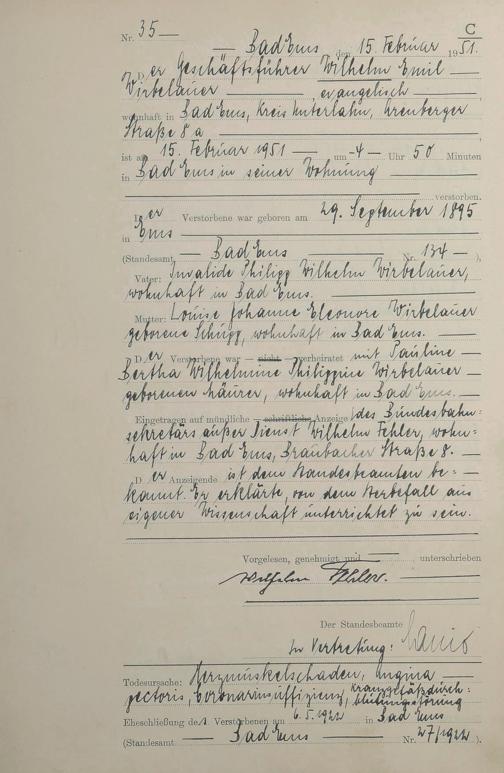 C
Nr. 35
Bad Ems, den 15. Februar 1951.
Der Geschäftsführer Wilhelm Emil
Wirbelauer evangelisch
wohnhaft in Bad Ems, Kreis Unterlahn, Arenberger
Straße 8 a
ist am 15. Februar 1951 um 4 Uhr 50 Minuten
in Bad Ems in seiner Wohnung
verstorben.
Der Verstorbene war geboren am 29. September 1895
in Ems
(Standesamt Bad Ems Nr. 134 ).
Vater: Invalide Philipp Wilhelm Wirbelauer,
wohnhaft in Bad Ems.
Mutter: Louise Johanne Eleonore Wirbelauer
geborene Schupp, wohnhaft in Bad Ems.
Der Verstorbene war nicht verheiratet mit Pauline
Bertha Wilhelmine Philippine Wirbelauer
geborenen wohnhaft in Bad Ems.
Eingetragen auf mündliche schriftliche Anzeige des Bundesbahn=
sekretärs außer Dienst Wilhelm Fehler, wohn=
haft in Bad Ems, Braubacher Straße 8.
Der Anzeigende ist dem Standesbeamten be=
kannt. Er erklärte, von dem Sterbefall aus
eigener Wissenschaft unterrichtet zu sein.
Vorgelesen, genehmigt und unterschrieben
Wilhelm Fehler.
Der Standesbeamte
In Vertretung:
Todesursache: Herzmuskelschaden, Angina
pectoris, Coronarinsuffizienz, Kranzgefäßdurch=
blutungsstörung
Eheschließung des Verstorbenen am 6.5.1922 in Bad Ems
(Standesamt Bad Ems Nr. 27/1922 ).